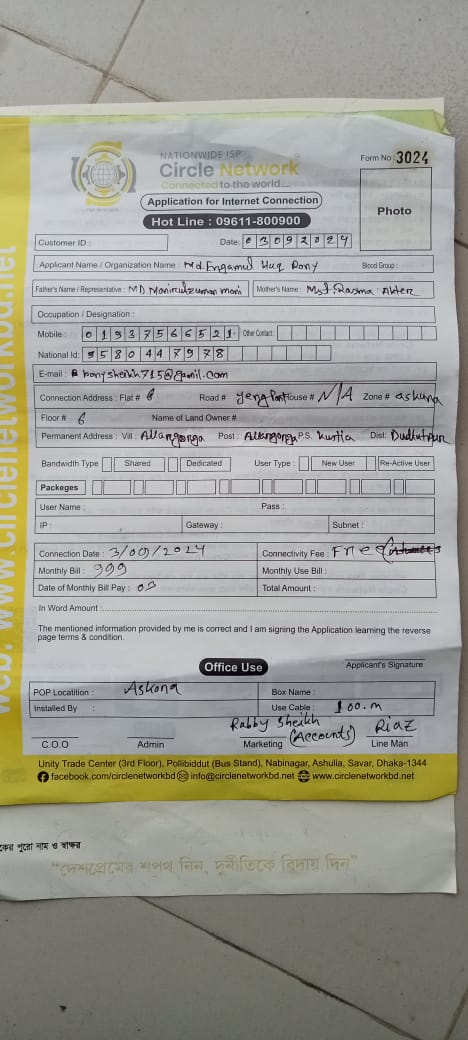 NATIONWIDE ISP
Circle Network
Connected to the world....
Form No 3024
Application for Internet Connection
Hot Line : 09611-800900
Photo
Customer ID :
Date: 03092024
Applicant Name / Organization Name : Md. Engamul Huq Rony Blood Group :
Father's Name / Representative : MD Maniruzzaman mani Mother's Name : Akter
Occupation / Designation :
Mobile : 01937566521 Other Contact :
National Id: 9580447978
E-mail : ronysheikh715@gamil.com
Connection Address : Flat # 6 Road # House # N/A Zone # askuna
Floor # 6 Name of Land Owner #
Permanent Address : Vill : Allangonga Post : Allangonga P.S. kustia Dist:
Bandwidth Type Shared Dedicated User Type : New User Re-Active User
Packeges
User Name : Pass :
IP : Gateway : Subnet :
Connection Date : 3/09/2024 Connectivity Fee : Free
Monthly Bill : 999 Monthly Use Bill :
Date of Monthly Bill Pay : 09 Total Amount :
In Word Amount :
The mentioned information provided by me is correct and I am signing the Application learning the reverse
page terms & condition.
Office Use
Applicant's Signature
POP Locatition : Askona Box Name :
Installed By : Use Cable : 100.m
Rabby Sheikh (Accounts) Riaz
C.O.O Admin Marketing Line Man
Unity Trade Center (3rd Floor), Pollibiddut (Bus Stand), Nabinagar, Ashulia, Savar, Dhaka-1344
facebook.com/circlenetworkbd info@circlenetworkbd.net www.circlenetworkbd.net
web: www.circlenetworkbd.net
কের পুরো নাম ও স্বাক্ষর
"দেশপ্রেমের শপথ নিন, দুর্নীতিকে বিদায় দিন"